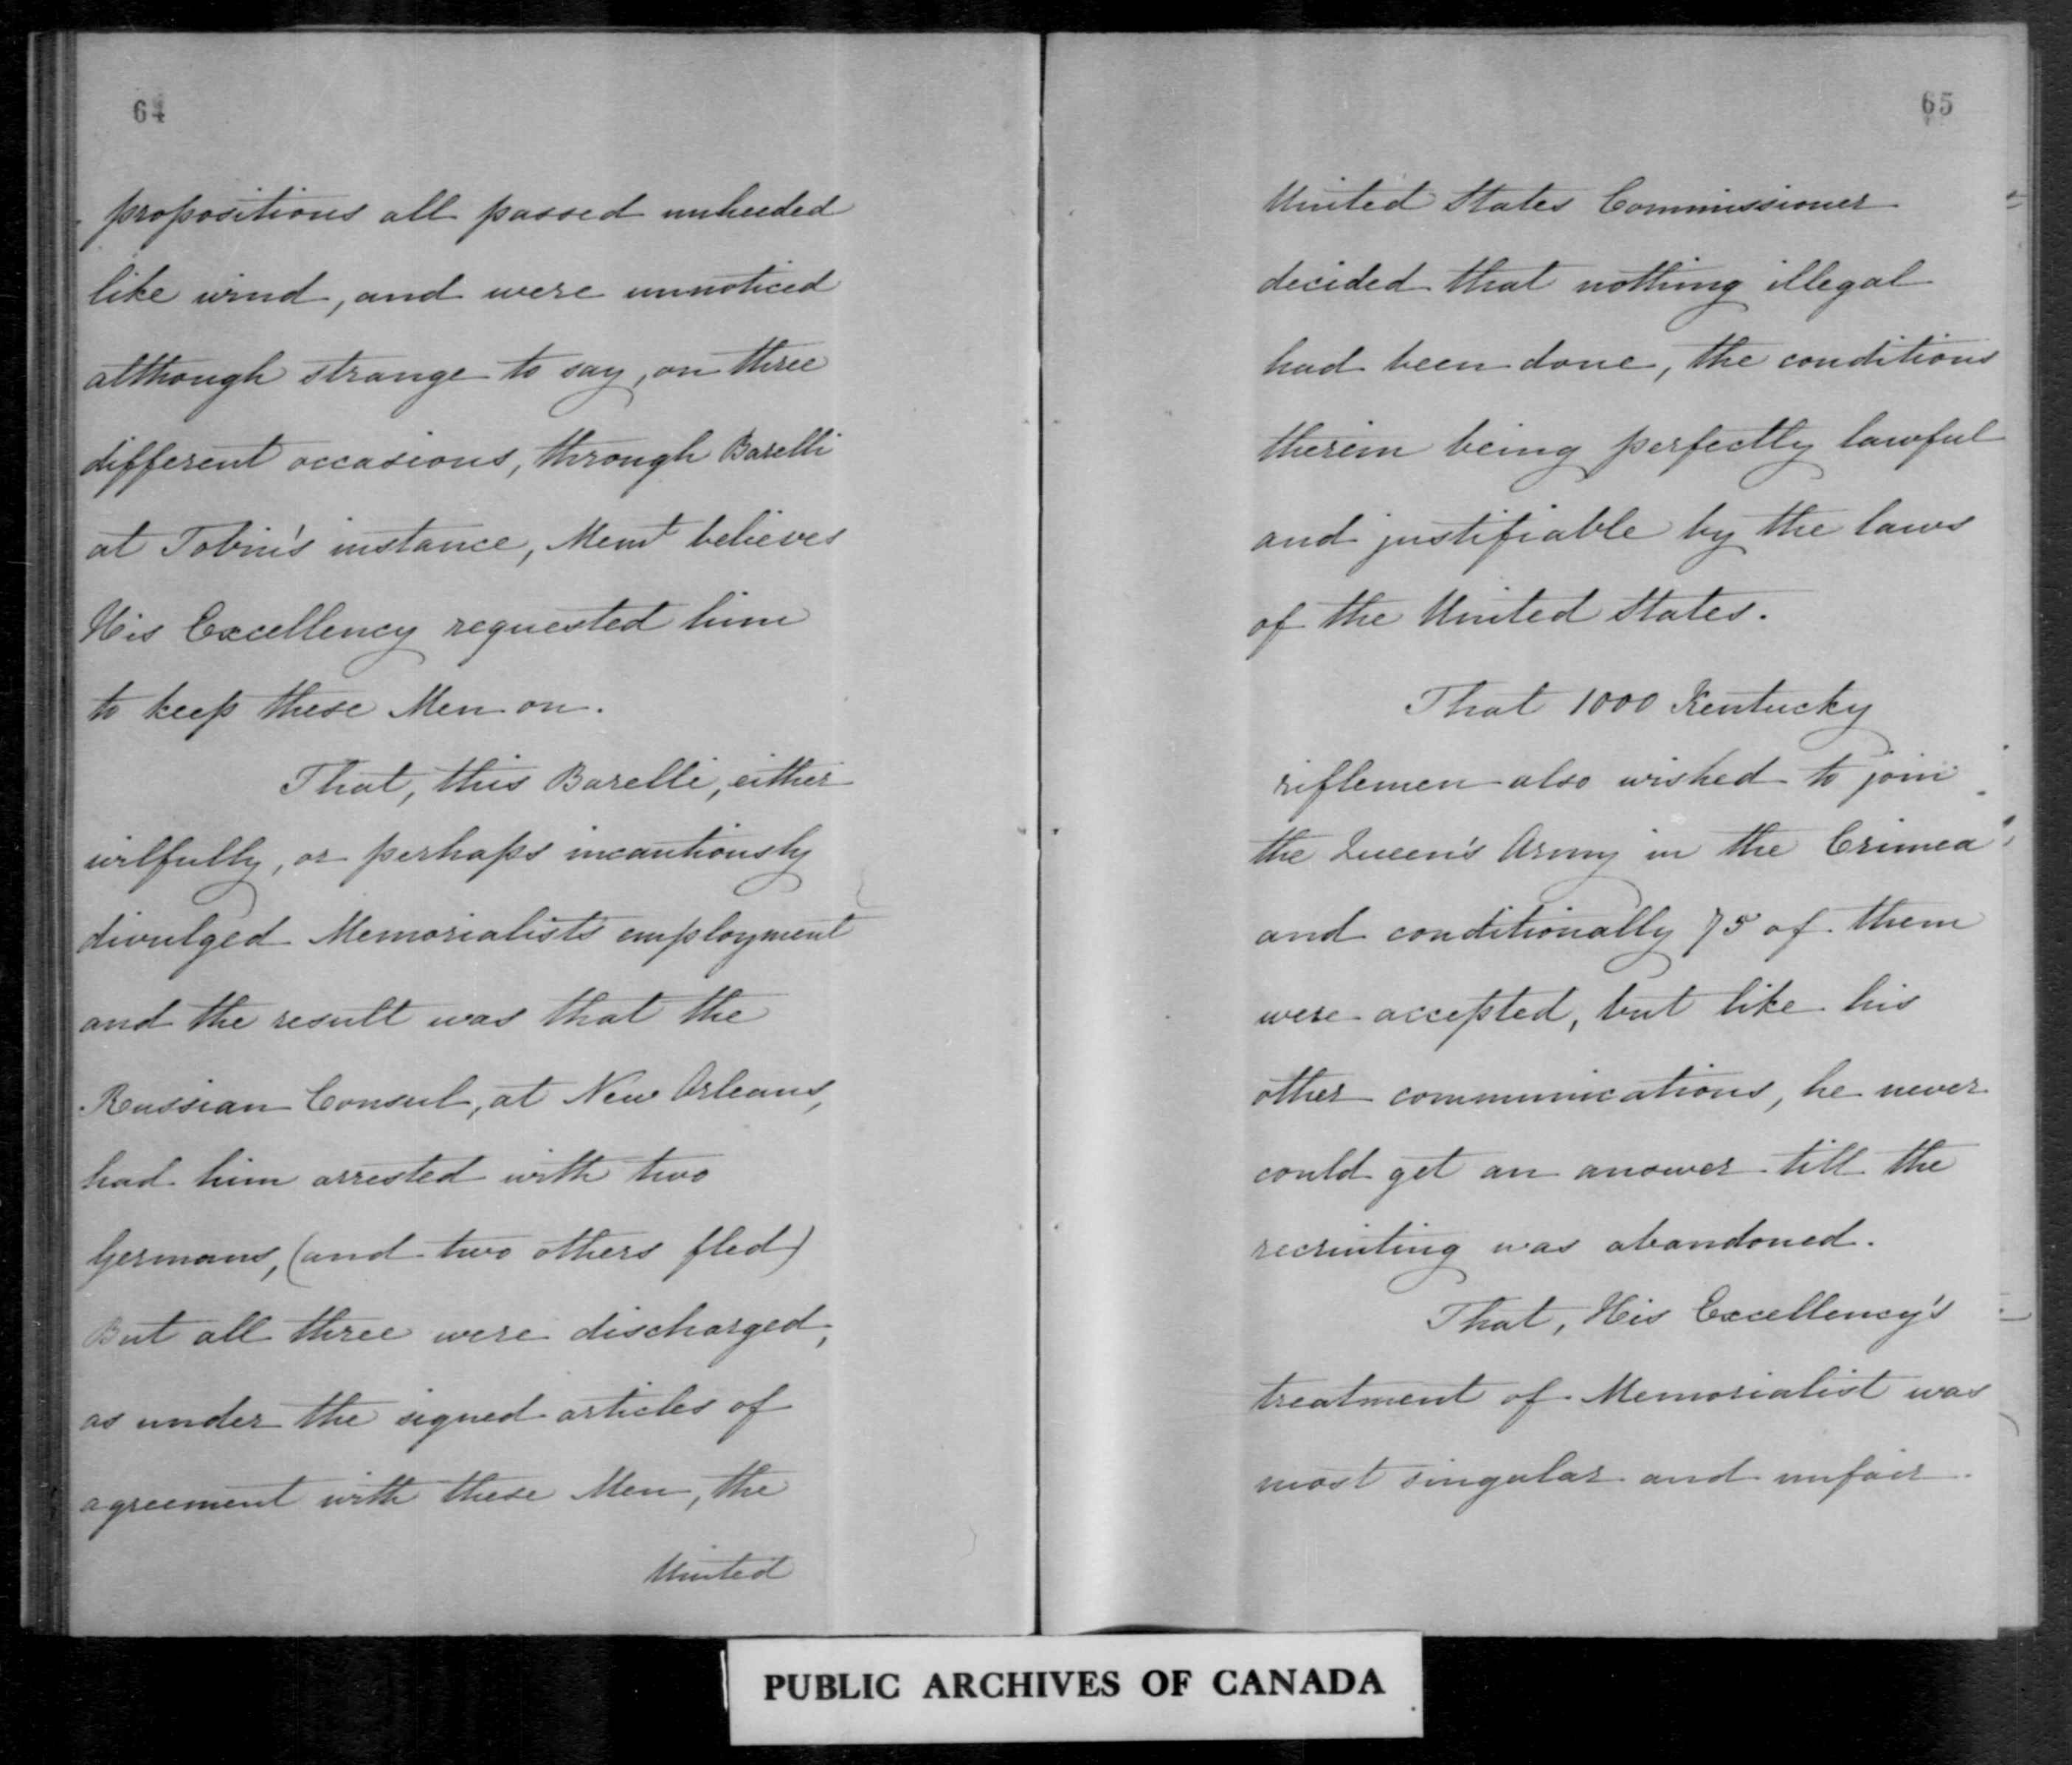 64
propositions all passed unheeded
like wind, and were unnoticed
although strange to say, on three
different occasions, through Barelli
at Tobin's instance, Memt believes
His Excellency requested him
to keep these Men on.
That, this Barelli, either
wilfully, or perhaps incautiously
divulged Memorialists employment
and the result was that the
Russian Consul, at New Orleans,
had him arrested with two
Germans, (and two others fled)
But all three were discharged,
as under the signed articles of
agreement with these Men, the
United
65
United States Commissioner
decided that nothing illegal
had been done, the conditions
therein being perfectly lawful
and justifiable by the laws
of the United States.
That 1000 Kentucky
riflemen also wished to join
the Queen's Army in the Crimea
and conditionally 75 of them
were accepted, but like his
other communications, he never
could get an answer till the
recruiting was abandoned.
That, His Excellency's
treatment of Memorialist was
most singular and unfair.
PUBLIC ARCHIVES OF CANADA